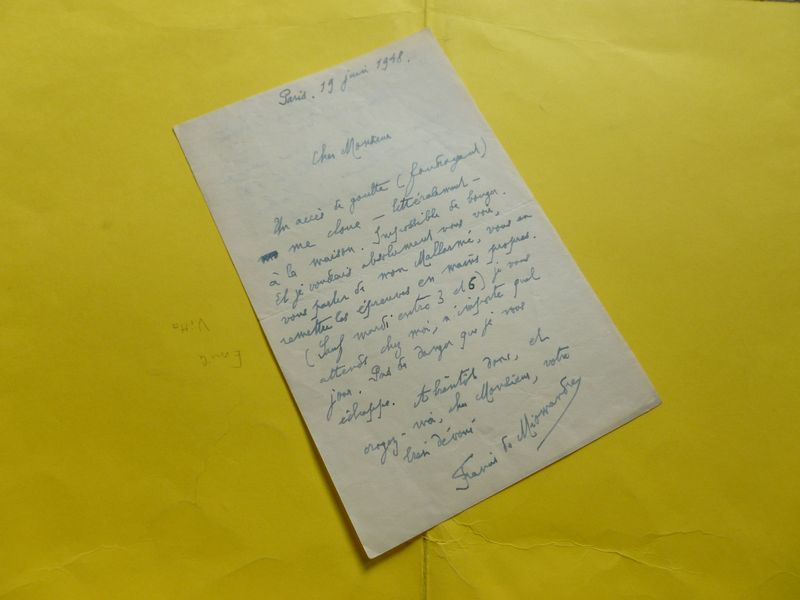 Paris. 19 juin 1948.
Cher Monsieur
Un accès de goutte (foudroyant)
me cloue – littéralement –
à la maison. Impossible de bouger.
Et je voudrais absolument vous voir,
vous parler de mon Mallarmé, vous en
remettre les épreuves en mains propres.
(Sauf mardi entre 3 et 6) je vous
attends chez moi, n'importe quel
jour. Pas de danger que je vous
échappe. A bientôt donc, et
croyez-moi, cher Monsieur, votre
bien dévoué
Francis de Miomandre
Vitta